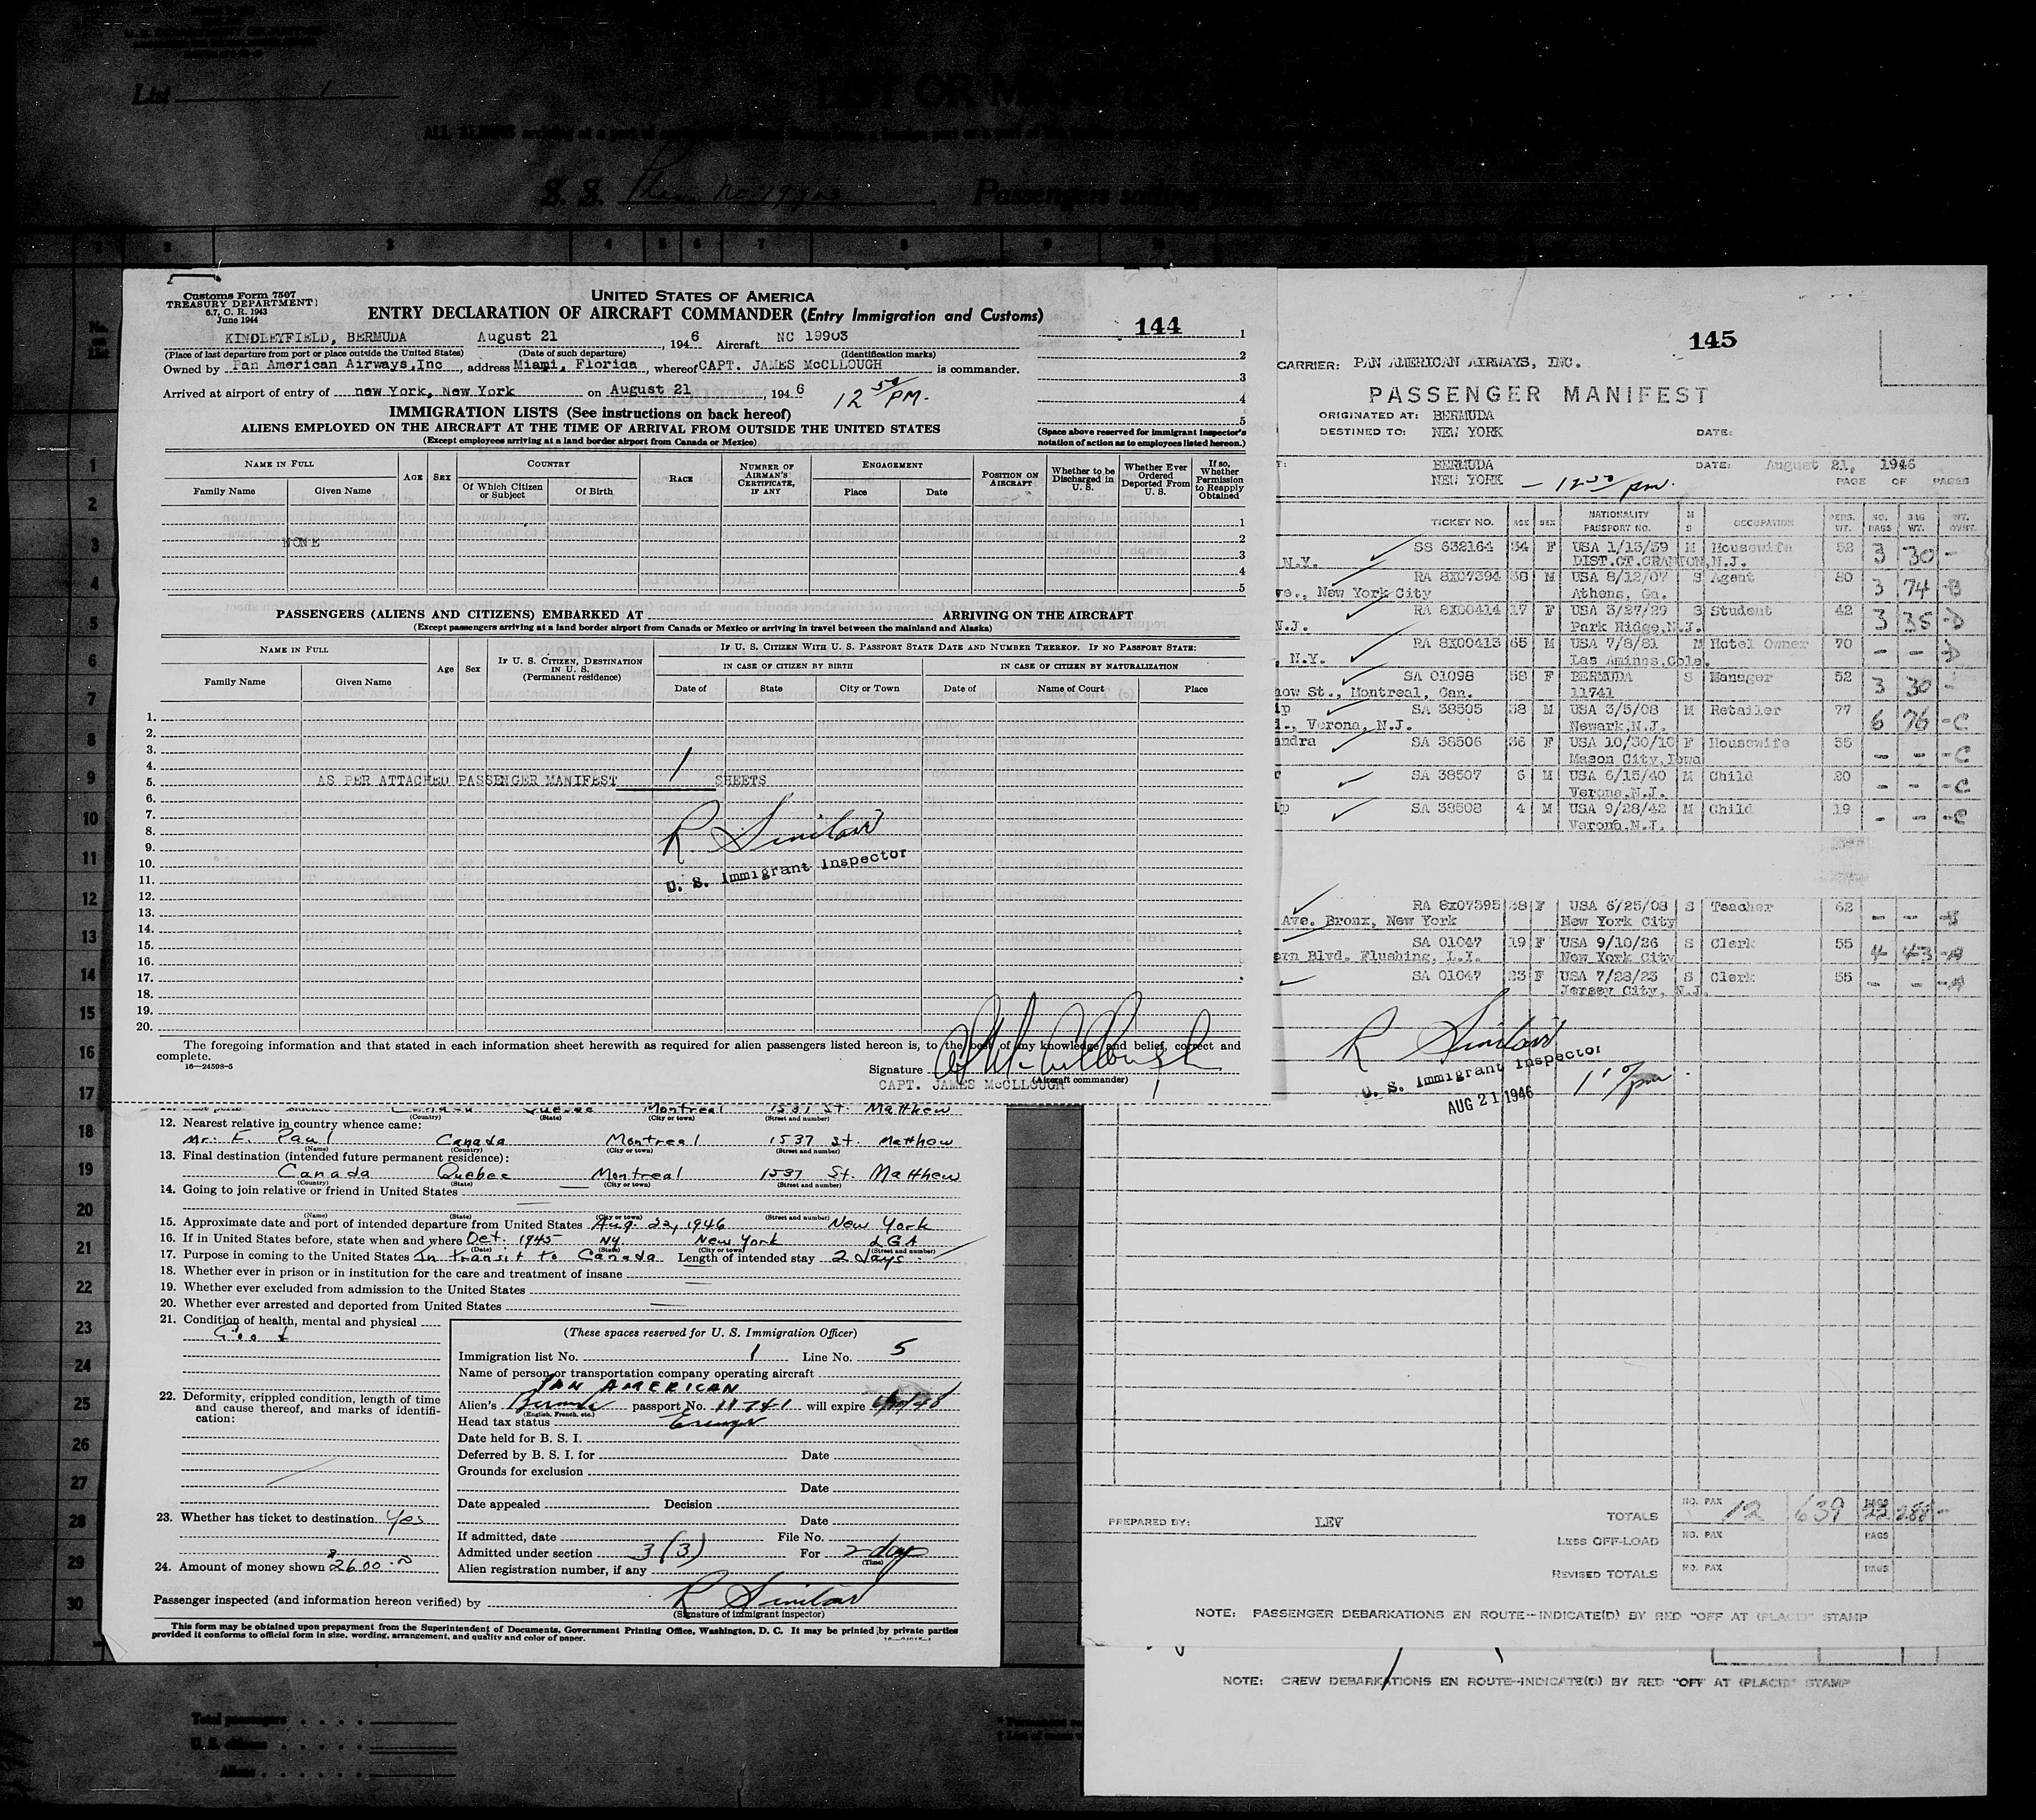 List 1
LIST OR MANIFEST
S. S. Passengers sailing from
Customs Form 7507
TREASURY DEPARTMENT
6.7, C. R. 1943
June 1944
UNITED STATES OF AMERICA
ENTRY DECLARATION OF AIRCRAFT COMMANDER (Entry Immigration and Customs)
144
KINDLEYFIELD, BERMUDA August 21, 1946 Aircraft NC 19903
(Place of last departure from port or place outside the United States) (Date of such departure) (Identification marks)
Owned by Pan American Airways,Inc, address Miami, Florida, whereof CAPT. JAMES McCLLOUGH is commander.
Arrived at airport of entry of new York, New York on August 21, 1946 12 50 PM.
IMMIGRATION LISTS (See instructions on back hereof)
ALIENS EMPLOYED ON THE AIRCRAFT AT THE TIME OF ARRIVAL FROM OUTSIDE THE UNITED STATES
(Except employees arriving at a land border airport from Canada or Mexico)
1
2
3
4
5
(Space above reserved for immigrant inspector's notation of action as to employees listed hereon.)
NAME IN FULL AGE SEX COUNTRY RACE NUMBER OF AIRMAN'S CERTIFICATE, IF ANY ENGAGEMENT POSITION ON AIRCRAFT Whether to be Discharged in U. S. Whether Ever Ordered Deported From U. S. If so, Whether Permission to Reapply Obtained
Family Name Given Name Of Which Citizen or Subject Of Birth Place Date
1
2
NONE
3
4
5
PASSENGERS (ALIENS AND CITIZENS) EMBARKED AT ARRIVING ON THE AIRCRAFT
(Except passengers arriving at a land border airport from Canada or Mexico or arriving in travel between the mainland and Alaska)
NAME IN FULL Age Sex IF U. S. CITIZEN, DESTINATION IN U. S. (Permanent residence) IF U. S. CITIZEN WITH U. S. PASSPORT STATE DATE AND NUMBER THEREOF. IF NO PASSPORT STATE:
IN CASE OF CITIZEN BY BIRTH IN CASE OF CITIZEN BY NATURALIZATION
Family Name Given Name Date of State City or Town Date of Name of Court Place
1.
2.
3.
4.
5. AS PER ATTACHED PASSENGER MANIFEST 1 SHEETS
6.
7.
8. R. Sinclair
9.
10.
11. U. S. Immigrant Inspector
12.
13.
14.
15.
16.
17.
18.
19.
20.
The foregoing information and that stated in each information sheet herewith as required for alien passengers listed hereon is, to the best of my knowledge and belief, correct and complete.
16—24598-5
Signature
CAPT. JAMES McCLLOUGH (Aircraft commander)
Canada Quebec Montreal 1537 St. Matthew
(Country) (State) (City or town) (Street and number)
12. Nearest relative in country whence came:
Mr. F. Paul Canada Montreal 1537 St. Matthew
(Name) (Country) (City or town) (Street and number)
13. Final destination (intended future permanent residence):
Canada Quebec Montreal 1537 St. Matthew
(Country) (State) (City or town) (Street and number)
14. Going to join relative or friend in United States
(Name) (State) (City or town) (Street and number)
15. Approximate date and port of intended departure from United States Aug. 22, 1946 New York
16. If in United States before, state when and where Oct. 1945 NY. New York LGA
(Date) (State) (City or town) (Street and number)
17. Purpose in coming to the United States In transit to Canada Length of intended stay 2 days.
18. Whether ever in prison or in institution for the care and treatment of insane
19. Whether ever excluded from admission to the United States
20. Whether ever arrested and deported from United States
21. Condition of health, mental and physical
Good
22. Deformity, crippled condition, length of time and cause thereof, and marks of identification:
23. Whether has ticket to destination. Yes
24. Amount of money shown $2600.00
(These spaces reserved for U. S. Immigration Officer)
Immigration list No. 1 Line No. 5
Name of person or transportation company operating aircraft
PAN AMERICAN
Alien's Bermuda passport No. 11741 will expire
(English, French, etc.)
Head tax status Exempt
Date held for B. S. I.
Deferred by B. S. I. for Date
Grounds for exclusion
Date
Date appealed Decision
Date
If admitted, date File No.
Admitted under section 3(3) For 2 days
(Time)
Alien registration number, if any
Passenger inspected (and information hereon verified) by R Sinclair
(Signature of immigrant inspector)
This form may be obtained upon prepayment from the Superintendent of Documents, Government Printing Office, Washington, D. C. It may be printed by private parties provided it conforms to official form in size, wording, arrangement, and quality and color of paper.
145
CARRIER: PAN AMERICAN AIRWAYS, INC.
PASSENGER MANIFEST
ORIGINATED AT: BERMUDA
DESTINED TO: NEW YORK DATE:
BERMUDA DATE: August 21, 1946
NEW YORK — 12 50 pm. PAGE OF PAGES
TICKET NO. AGE SEX NATIONALITY PASSPORT NO. M S OCCUPATION PERS. WT. NO. BAGS BAG WT. WT. OVHT.
SS 632164 34 F USA 1/13/39 M Housewife 52 3 30 -
N.Y. DIST.CT.CRANTON,N.J.
RA 8X07394 38 M USA 8/12/07 S Agent 80 3 74 -B
ve., New York City Athens, Ga.
RA 8X00414 17 F USA 3/27/29 S Student 42 3 35 -D
N.J. Park Ridge,N.J.
RA 8X00413 65 M USA 7/8/81 M Hotel Owner 70 - - D
N.Y. Las Aminas,Colo.
SA 01098 58 F BERMUDA S Manager 52 3 30 -
now St., Montreal, Can. 11741
ip SA 38505 38 M USA 3/5/08 M Retailer 77 6 76 -C
., Verona, N.J. Newark,N.J.
andra SA 38506 36 F USA 10/30/10 F Housewife 55 - - -C
Mason City,Iowa
SA 38507 6 M USA 6/15/40 M Child 20 - - -C
Verona,N.J.
ip SA 38508 4 M USA 9/28/42 M Child 19 - - -C
Verona,N.J.
RA 8x07395 38 F USA 6/25/08 S Teacher 62 - - -B
Ave. Bronx, New York New York City
SA 01047 19 F USA 9/10/26 S Clerk 55 4 43 -A
ern Blvd. Flushing, L.I. New York City
SA 01047 23 F USA 7/23/23 S Clerk 55 - - -A
Jersey City, N.J.
R Sinclair
U. S. Immigrant Inspector
AUG 21 1946 1 10 pm.
PREPARED BY: LEV
TOTALS NO. PAX 12 639 BAGS 22 288 -
LESS OFF-LOAD NO. PAX BAGS
REVISED TOTALS NO. PAX BAGS
NOTE: PASSENGER DEBARKATIONS EN ROUTE--INDICATE(D) BY RED "OFF AT (PLACE)" STAMP
NOTE: CREW DEBARKATIONS EN ROUTE--INDICATE(D) BY RED "OFF AT (PLACE)" STAMP
Total passengers
U. S. citizens
Aliens